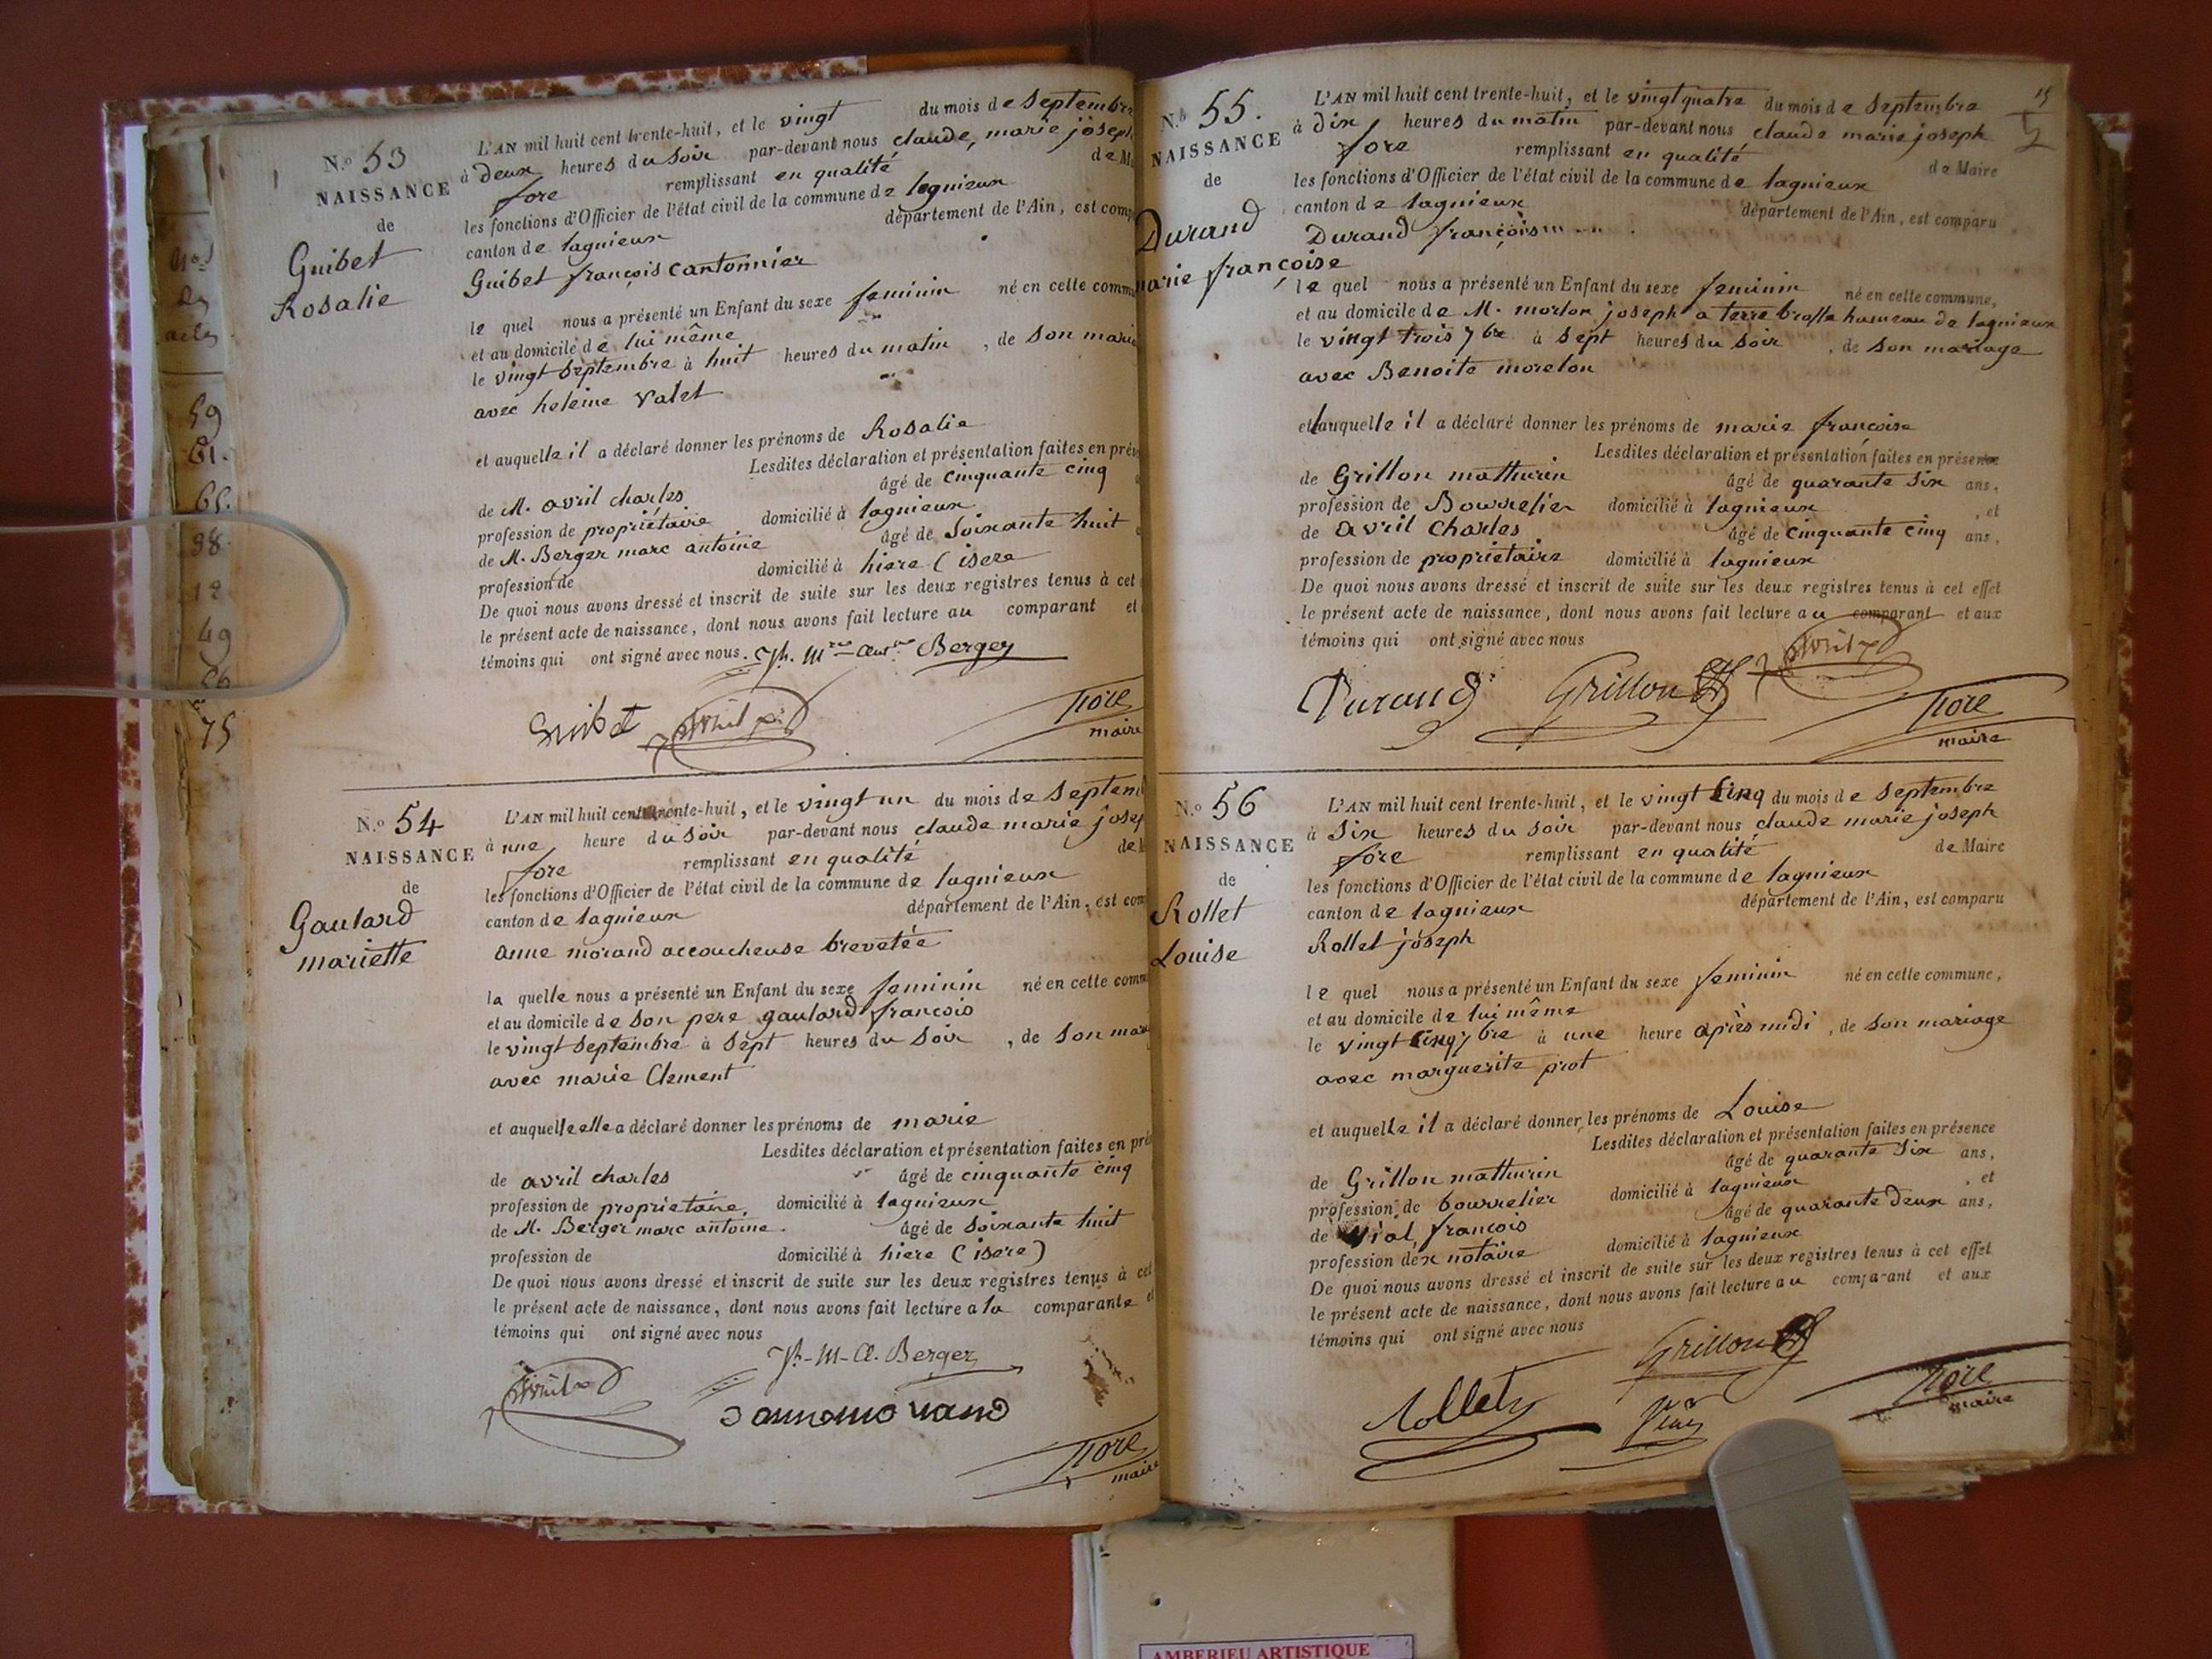 N.os
des
actes
59
61.
65.
98.
12
49
56
75
N.o 53
NAISSANCE
de
Guibet
Rosalie
L'AN mil huit cent trente-huit, et le vingt du mois de Septembre
à deux heures du soir par-devant nous claude, marie joseph
fore remplissant en qualité de M
les fonctions d'Officier de l'état civil de la commune de lagnieux
canton de lagnieux département de l'Ain, est comp
Guibet françois cantonnier
le quel nous a présenté un Enfant du sexe feminin né en cette commu
et au domicile de lui même
le vingt Septembre à huit heures du matin, de son maria
avec heleine Valet
et auquelle il a déclaré donner les prénoms de Rosalie
Lesdites déclaration et présentation faites en prés
de M. avril charles âgé de cinquante cinq
profession de propriétaire domicilié à lagnieux
de M. Berger marc antoine âgé de Soixante huit
profession de domicilié à hiere (isere
De quoi nous avons dressé et inscrit de suite sur les deux registres tenus à cet
le présent acte de naissance, dont nous avons fait lecture au comparant et
témoins qui ont signé avec nous. Ph. Mre Antne Berger
Guibet Avril fore
maire
N.o 54
NAISSANCE
de
Gaulard
mariette
L'AN mil huit cent trente-huit, et le vingt un du mois de Septem
à une heure du soir par-devant nous claude marie josep
fore remplissant en qualité de M
les fonctions d'Officier de l'état civil de la commune de lagnieux
canton de lagnieux département de l'Ain, est com
anne morand accoucheuse brevetée
la quelle nous a présenté un Enfant du sexe feminin né en cette comm
et au domicile de son pere gaulard francois
le vingt Septembre à Sept heures du Soir, de son mari
avec marie Clement
et auquelle elle a déclaré donner les prénoms de marie
Lesdites déclaration et présentation faites en pré
de avril charles âgé de cinquante cinq
profession de proprietaire, domicilié à lagnieux
de M. Berger marc antoine. âgé de soixante huit
profession de domicilié à hiere (isere)
De quoi nous avons dressé et inscrit de suite sur les deux registres tenus à cet
le présent acte de naissance, dont nous avons fait lecture a la comparante et
témoins qui ont signé avec nous
Ph-M-A. Berger
Avril
anne morand
fore
maire
15
N.o 55.
NAISSANCE
de
Durand
marie françoise
L'AN mil huit cent trente-huit, et le vingt quatre du mois de Septembre
à dix heures du matin par-devant nous claude marie joseph
fore remplissant en qualité de Maire
les fonctions d'Officier de l'état civil de la commune de lagnieux
canton de lagnieux département de l'Ain, est comparu
Durand françois
le quel nous a présenté un Enfant du sexe feminin né en cette commune,
et au domicile de M. morlon joseph a terre brosse hameau de lagnieux
le vingt trois 7bre à sept heures du soir, de son mariage
avec Benoite morelon
et auquelle il a déclaré donner les prénoms de marie francoise
Lesdites déclaration et présentation faites en présence
de Grillon mathurin âgé de quarante six ans,
profession de Bourrelier domicilié à lagnieux, et
de avril Charles âgé de cinquante cinq ans,
profession de proprietaire domicilié à lagnieux
De quoi nous avons dressé et inscrit de suite sur les deux registres tenus à cet effet
le présent acte de naissance, dont nous avons fait lecture au comparant et aux
témoins qui ont signé avec nous
Durand Grillon Avril
fore
maire
N.o 56
NAISSANCE
de
Rollet
Louise
L'AN mil huit cent trente-huit, et le vingt Cinq du mois de Septembre
à Six heures du soir par-devant nous claude marie joseph
fore remplissant en qualité de Maire
les fonctions d'Officier de l'état civil de la commune de lagnieux
canton de lagnieux département de l'Ain, est comparu
Rollet joseph
le quel nous a présenté un Enfant du sexe feminin né en cette commune,
et au domicile de lui même
le vingt Cinq 7bre à une heure après midi, de son mariage
avec marguerite prot
et auquelle il a déclaré donner les prénoms de Louise
Lesdites déclaration et présentation faites en présence
de Grillon mathurin âgé de quarante Six ans,
profession de bourrelier domicilié à lagnieux, et
de Vial francois âgé de quarante deux ans,
profession dex notaire domicilié à lagnieux
De quoi nous avons dressé et inscrit de suite sur les deux registres tenus à cet effet
le présent acte de naissance, dont nous avons fait lecture au comparant et aux
témoins qui ont signé avec nous
Grillon
Rollet
Vial
fore
maire
AMBERIEU ARTISTIQUE